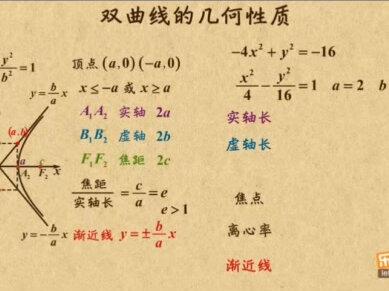 双曲线的几何性质
y²/b² = 1
y = b/a x
(a,b)
a
c
A₂ F₂
x
y = -b/a x
顶点 (a,0) (-a,0)
x ≤ -a 或 x ≥ a
A₁A₂ 实轴 2a
B₁B₂ 虚轴 2b
F₁F₂ 焦距 2c
焦距/实轴长 = c/a = e
e > 1
渐近线 y = ± b/a x
-4x² + y² = -16
x²/4 - y²/16 = 1 a = 2 b
实轴长
虚轴长
焦点
离心率
渐近线